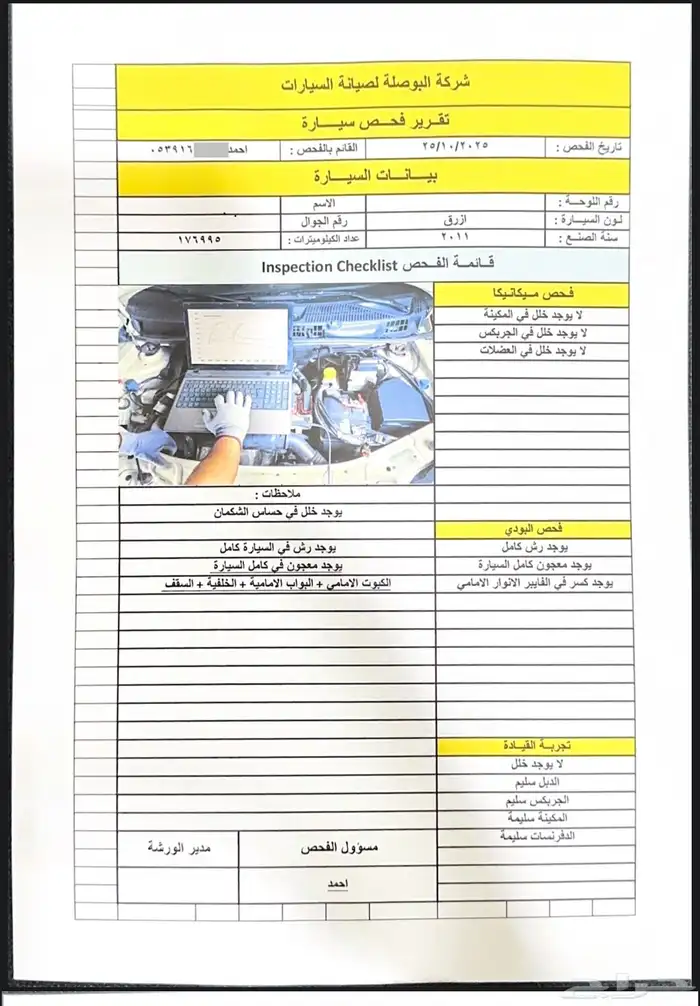 شركة البوصلة لصيانة السيارات
تقرير فحص سيارة
تاريخ الفحص : ٢٥/١٠/٢٠٢٥ القائم بالفحص : احمد ٠٥٣٩١٦
بيانات السيارة
رقم اللوحة : الاسم
لون السيارة : ازرق رقم الجوال
سنة الصنع : ٢٠١١ عداد الكيلوميترات : ١٧٦٩٩٥
قائمة الفحص Inspection Checklist
فحص ميكانيكا
لا يوجد خلل في المكينة
لا يوجد خلل في الجربكس
لا يوجد خلل في العضلات
ملاحظات :
يوجد خلل في حساس الشكمان
يوجد رش في السيارة كامل
يوجد معجون في كامل السيارة
الكبوت الامامي + البواب الامامية + الخلفية + السقف
فحص البودي
يوجد رش كامل
يوجد معجون كامل السيارة
يوجد كسر في الفايبر الانوار الامامي
تجربة القيادة
لا يوجد خلل
الدبل سليم
الجربكس سليم
المكينة سليمة
الدفرنسات سليمة
مسؤول الفحص مدير الورشة
احمد
حراج